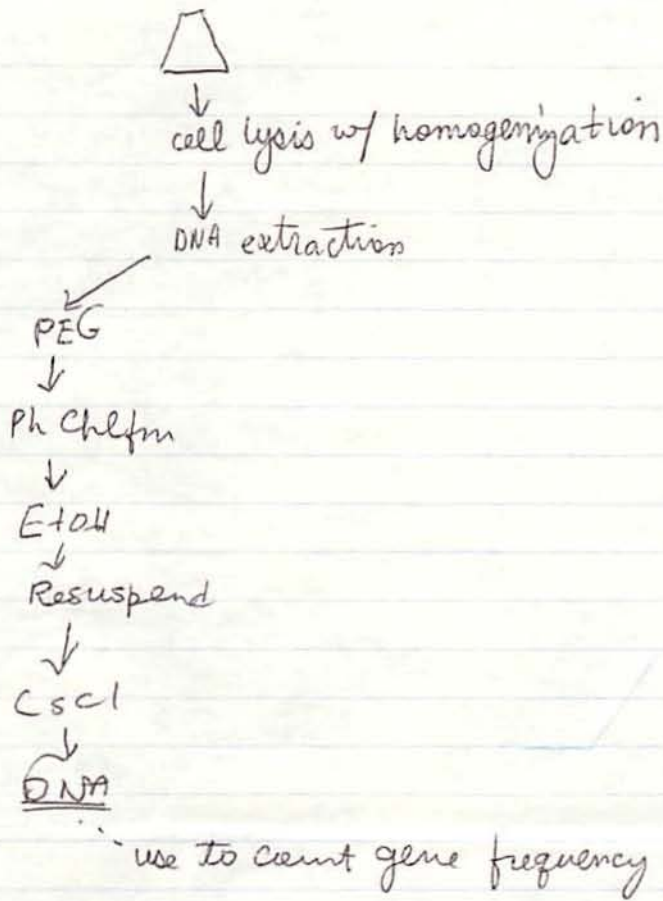 cell lysis w/ homogenization
DNA extraction
PEG
Ph Chlfm
EtOH
Resuspend
CsCl
DNA
use to count gene frequency